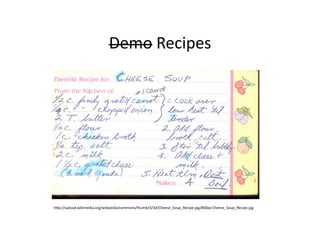 Demo Recipes
Favorite Recipe for: CHEESE SOUP
From the Kitchen of
1 carrot
1/2 c. finely grated carrot
1. Cook over
" - chopped onion
low heat 'til
2 T. butter
tender
1/4 c. flour
2. Add flour
1 c. chicken broth
broth
1/4 tsp. salt
3. Stir 'til
2 c. milk
4. Add cheese &
grated cheese
milk.
Makes: 4
http://upload.wikimedia.org/wikipedia/commons/thumb/3/3d/Cheese_Soup_Recipe.jpg/800px-Cheese_Soup_Recipe.jpg